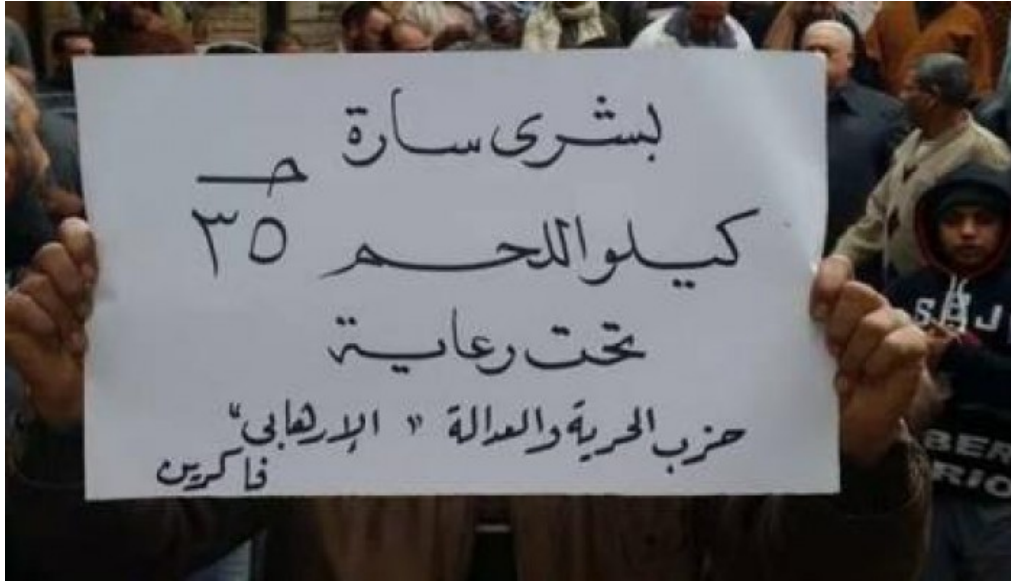 بشرى سارة
كيلو اللحم ٣٥ جـ
تحت رعاية
حزب الحرية والعدالة "الإرهابي"
فاكرين
BER
RIO